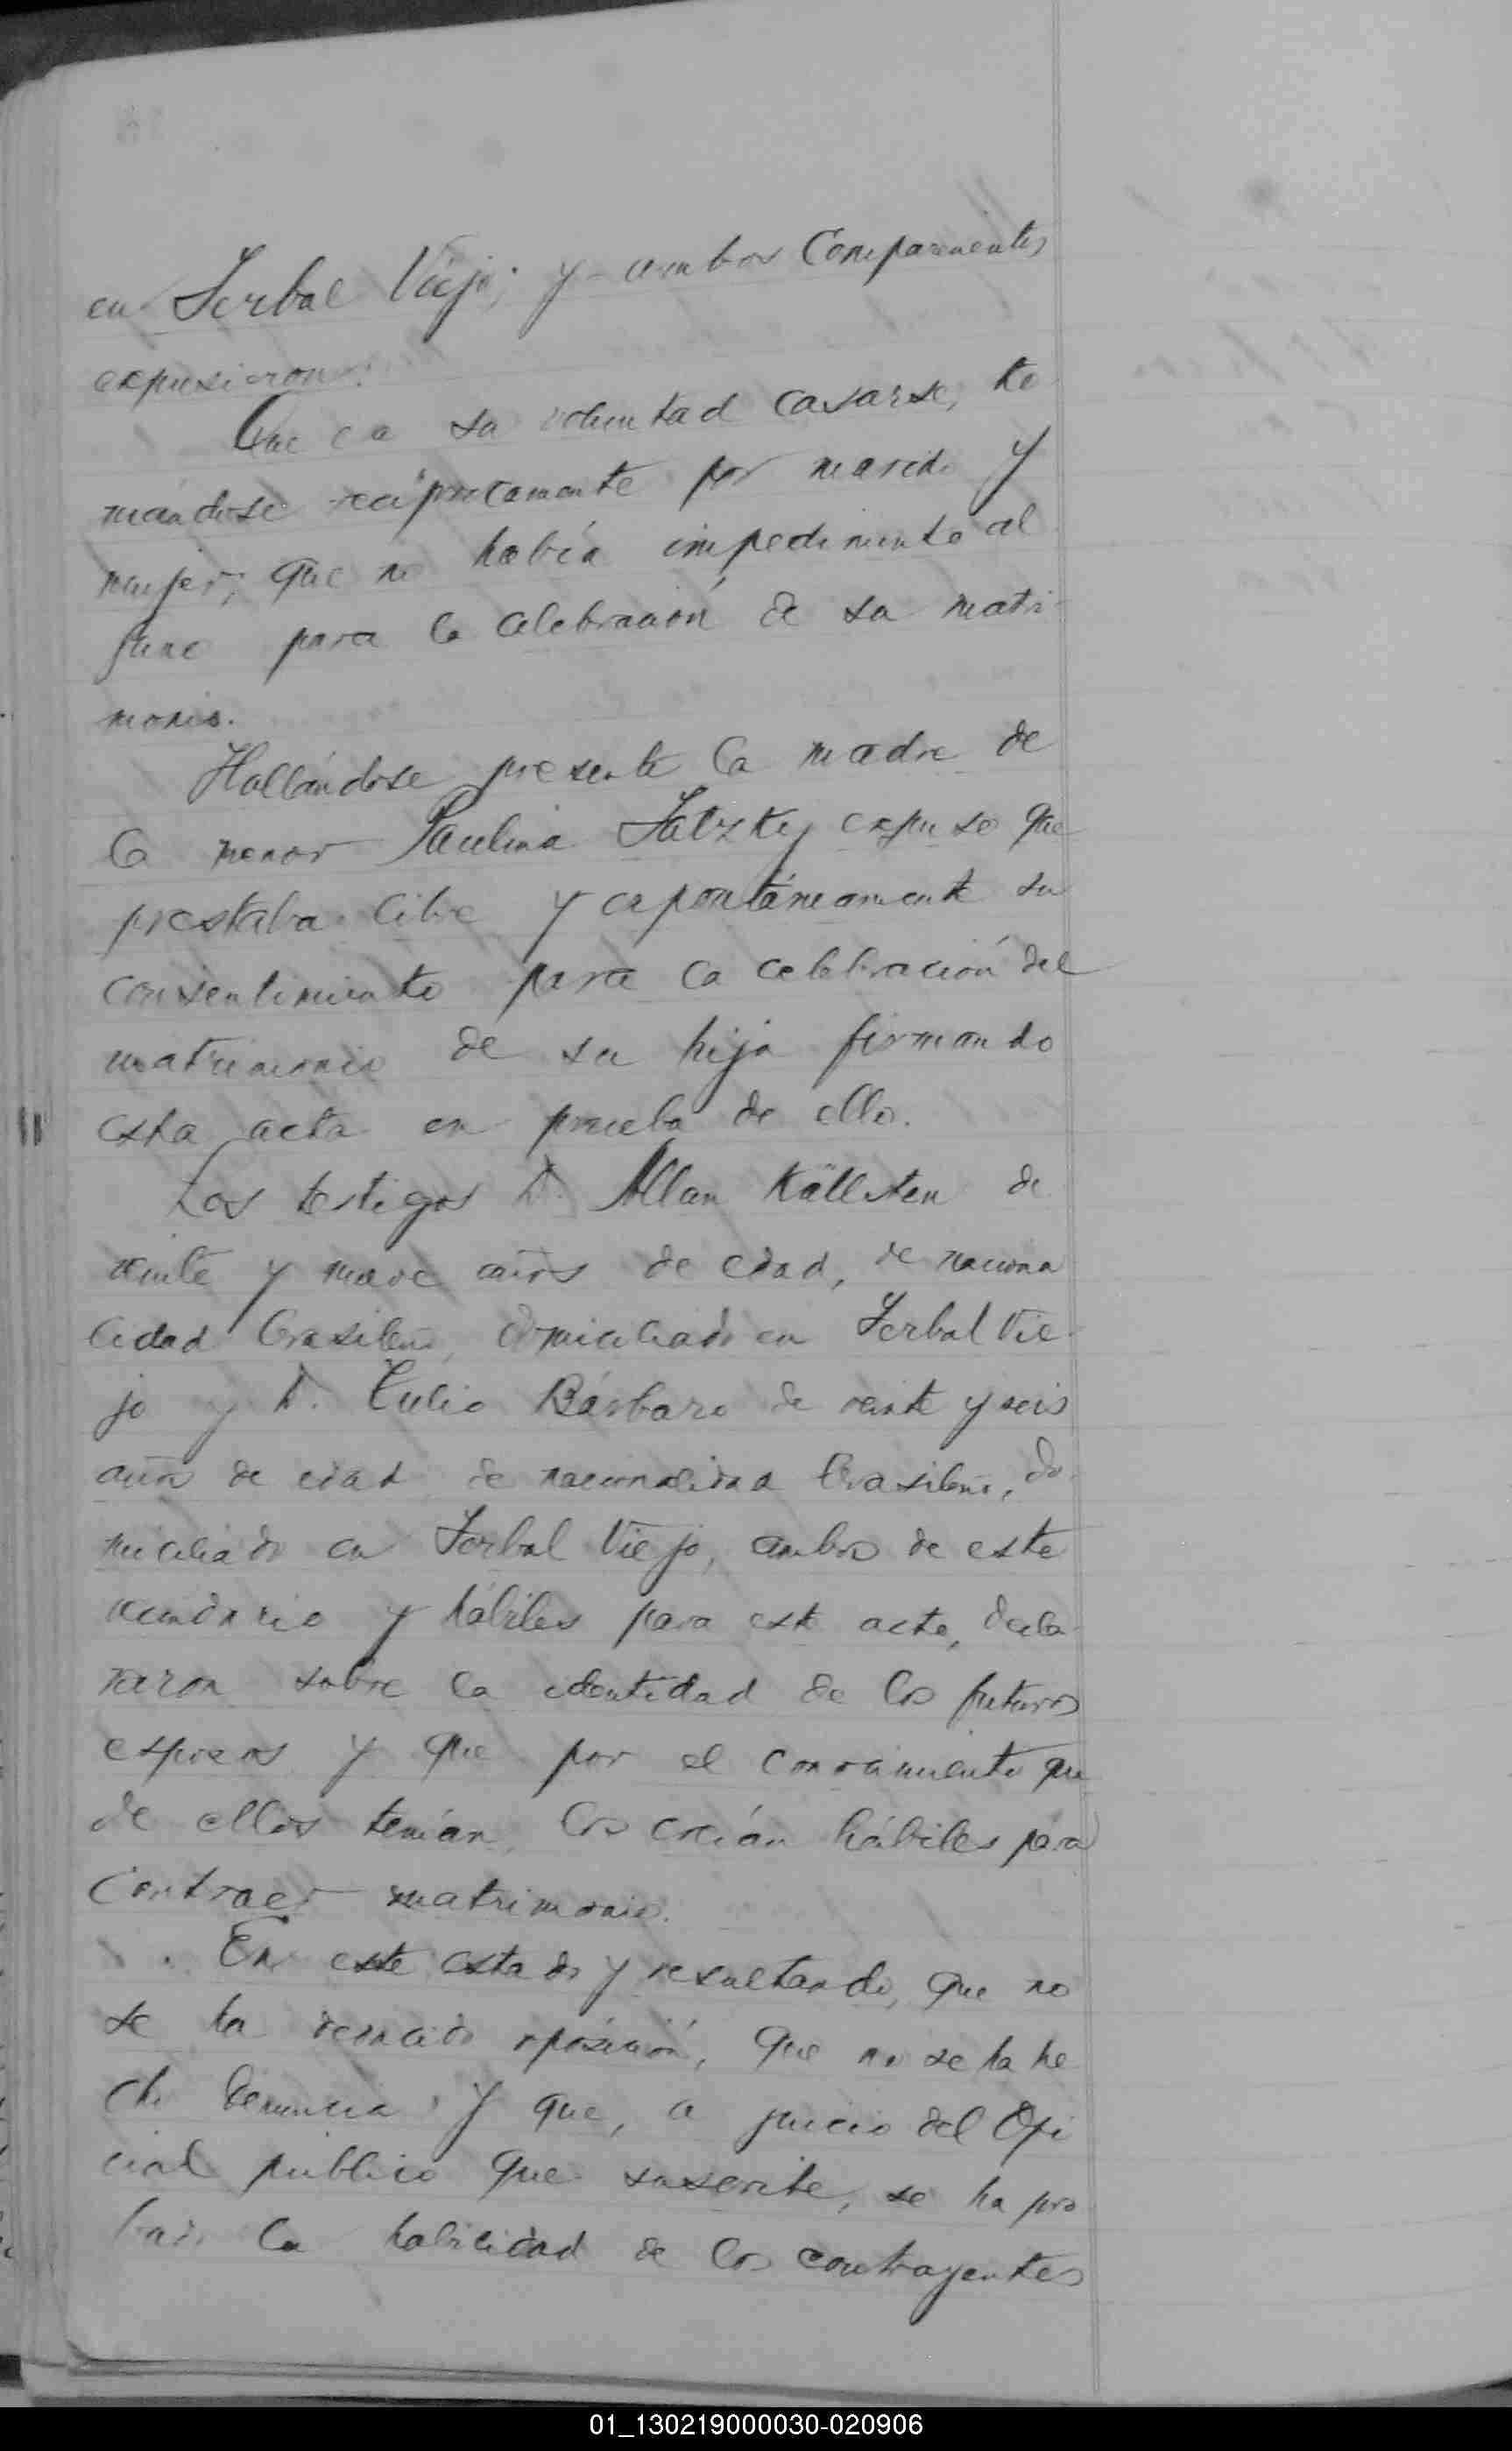 en Yerbal Viejo; y ambos Comparecientes
expusieron:
Que es su voluntad casarse, to
mándose recíprocamente por marido y
mujer, que no había impedimento al
guno para la celebración de su matri-
monio.
Hallándose presente la madre de
la menor Paulina Satzky expuso que
prestaba libre y espontáneamente su
consentimiento para la celebración del
matrimonio de su hija firmando
esta acta en prueba de ello.
Los testigos D. Allan Källsten de
veinte y nueve años de edad, de naciona
lidad brasileño, domiciliado en Yerbal Vie-
jo y D. Tulio Bárbaro de veinte y seis
años de edad de nacionalidad brasileño, do-
miciliado en Yerbal Viejo, ambos de este
vecindario y hábiles para este acto, decla-
raron sobre la identidad de los futuros
esposos y que por el conocimiento que
de ellos tenían, los creían hábiles para
contraer matrimonio.
En este estado y resultando, que no
se ha deducido oposición, que no se ha he
cho denuncia y que, a juicio del Ofi
cial público que suscribe, se ha pro
bado la habilidad de los contrayentes
01_130219000030-020906